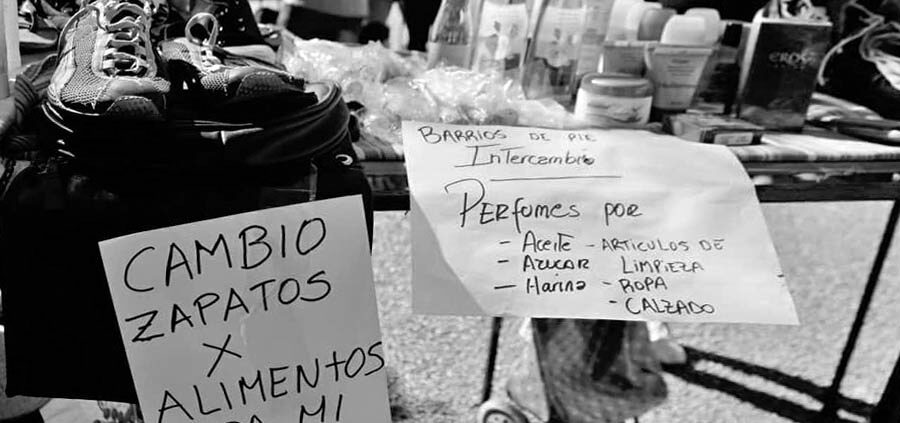 CAMBIO
ZAPATOS
X
ALIMENtOS
MI
BARRIOS DE PIE
InTercambio
PERfomes por
- Aceite - ARTICULOS DE
- AZUCAR LIMPIEZA
- Harina - ROPA
- CALZADO
EROS